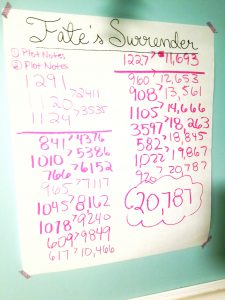 Fate's Surrender
① Plot Notes
② Plot Notes
1291
1120 > 2411
1124 > 3535
841 > 4376
1010 > 5386
766 > 6152
965 > 7117
1045 > 8162
1078 > 9240
609 > 9849
617 > 10,466
1227 > 11,693
960 > 12,653
908 > 13,561
1105 > 14,666
3597 > 18,263
582 > 18,845
1022 > 19,867
920 > 20,787
20,787